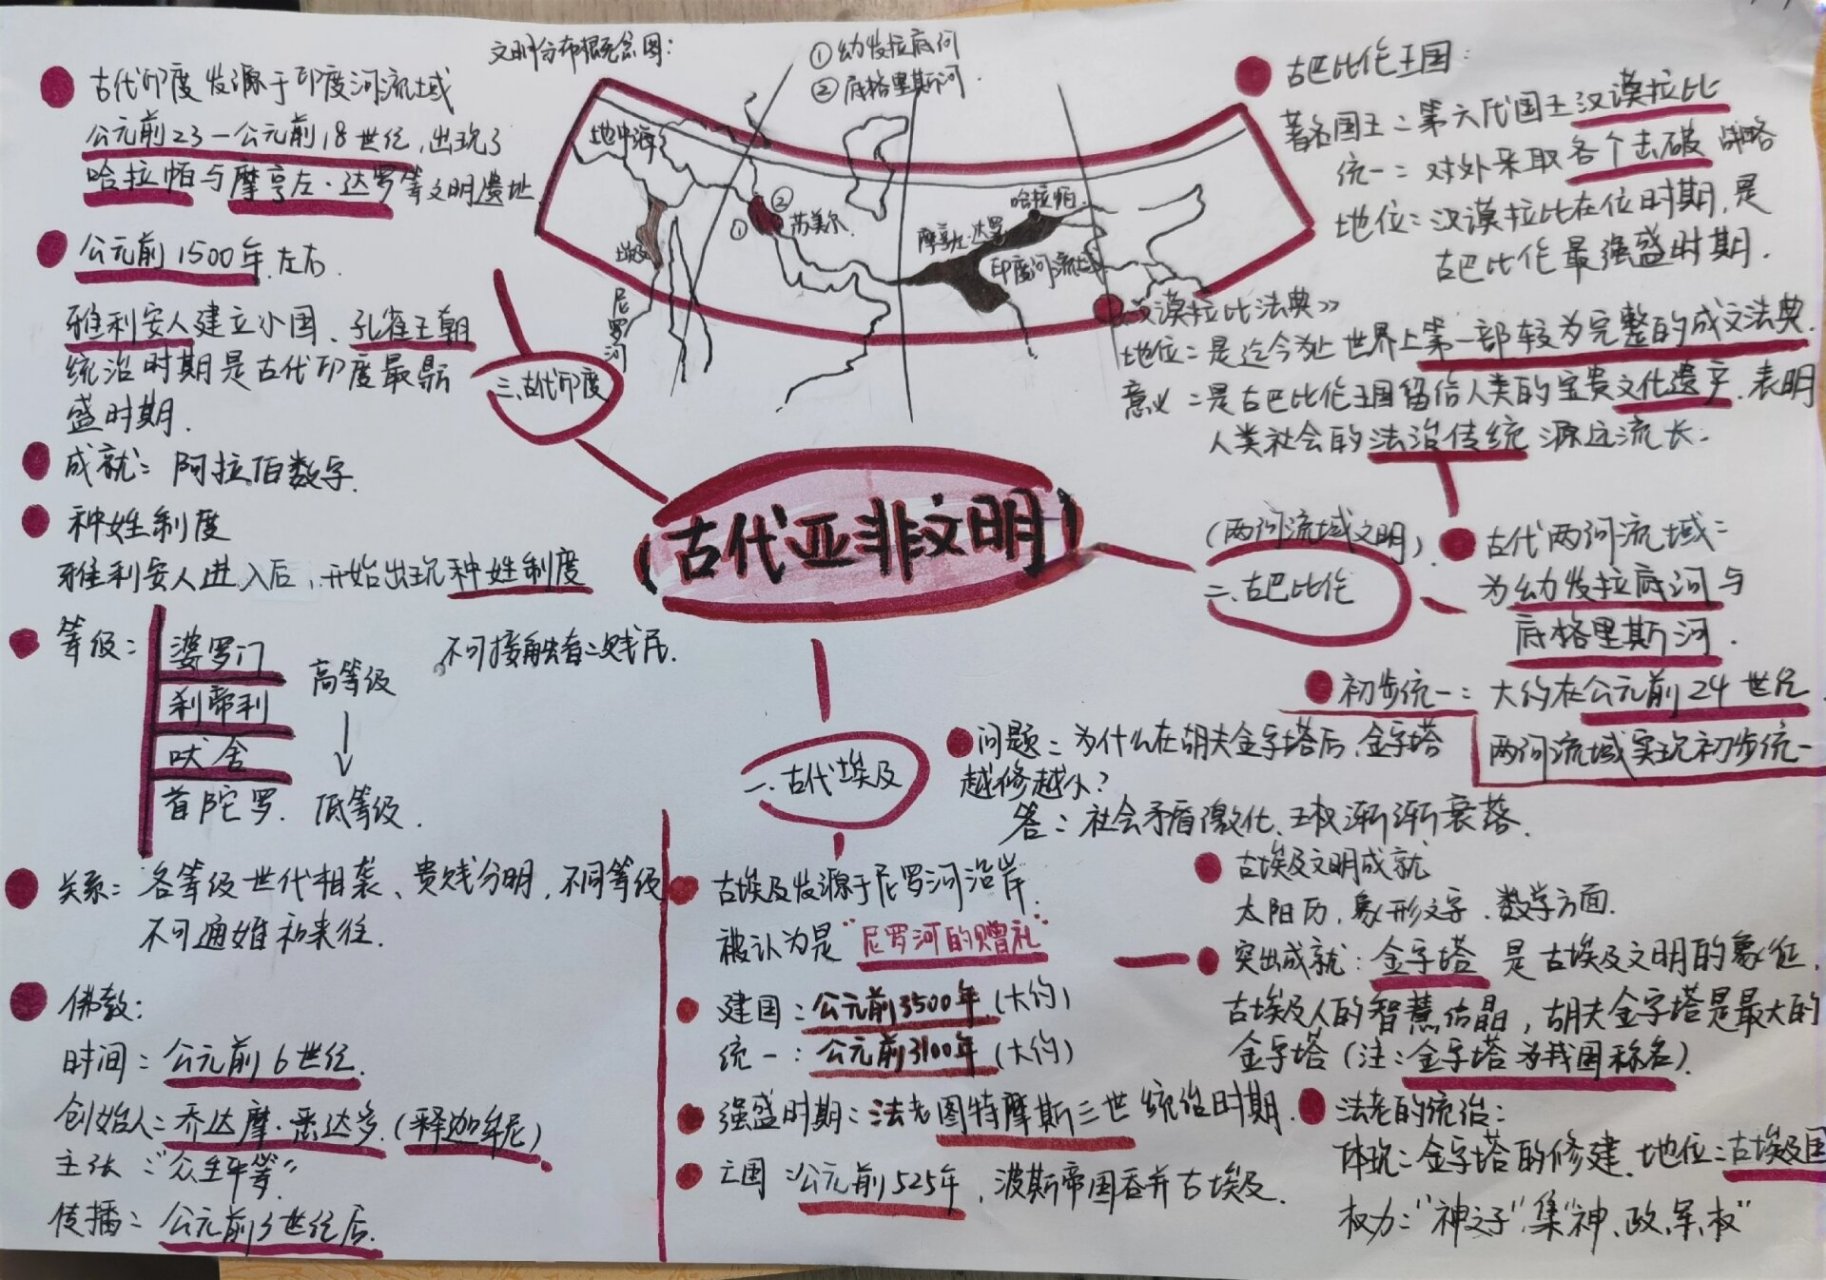 文明分布概念图：
①幼发拉底河
②底格里斯河.
地中海
埃及
尼罗河
①
②
苏美尔.
摩亨左·达罗
哈拉帕
印度河流域
古代亚非文明
三.古代印度
古代印度发源于印度河流域
公元前23—公元前18世纪,出现了
哈拉帕与摩亨左·达罗等文明遗址
公元前1500年左右.
雅利安人建立小国、孔雀王朝
统治时期是古代印度最
盛时期.
成就：阿拉伯数字.
种姓制度
雅利安人进入后,开始出现种姓制度
等级：
婆罗门
刹帝利
吠舍
首陀罗.
高等级
低等级.
不可接触者：贱民.
关系：各等级世代相袭、贵贱分明,不同等级
不可通婚和来往.
佛教：
时间：公元前6世纪.
创始人：乔达摩·悉达多.(释迦牟尼).
主张："众生平等"
传播：公元前3世纪后.
(两河流域文明)
二.古巴比伦
古巴比伦王国：
著名国王：第六代国王汉谟拉比
统一：对外采取各个击破战略
地位：汉谟拉比在位时期,是
古巴比伦最强盛时期.
《汉谟拉比法典》
地位：是迄今为止世界上第一部较为完整的成文法典.
意义：是古巴比伦王国留给人类的宝贵文化遗产.表明
人类社会的法治传统源远流长.
古代两河流域：
为幼发拉底河与
底格里斯河.
初步统一：大约在公元前24世纪
两河流域实现初步统一
一.古代埃及
问题：为什么在胡夫金字塔后,金字塔
越修越小?
答：社会矛盾激化、王权渐渐衰落.
古埃及发源于尼罗河沿岸.
被认为是"尼罗河的赠礼"
建国：公元前3500年.(大约)
统一：公元前3100年(大约)
强盛时期：法老图特摩斯三世统治时期.
亡国：公元前525年,波斯帝国吞并古埃及.
古埃及文明成就
太阳历,象形文字.数学方面.
突出成就：金字塔是古埃及文明的象征.
古埃及人的智慧结晶,胡夫金字塔是最大的
金字塔(注：金字塔为我国称名).
法老的统治：
体现：金字塔的修建.地位：古埃及国
权力："神之子"集"神、政、军、权"